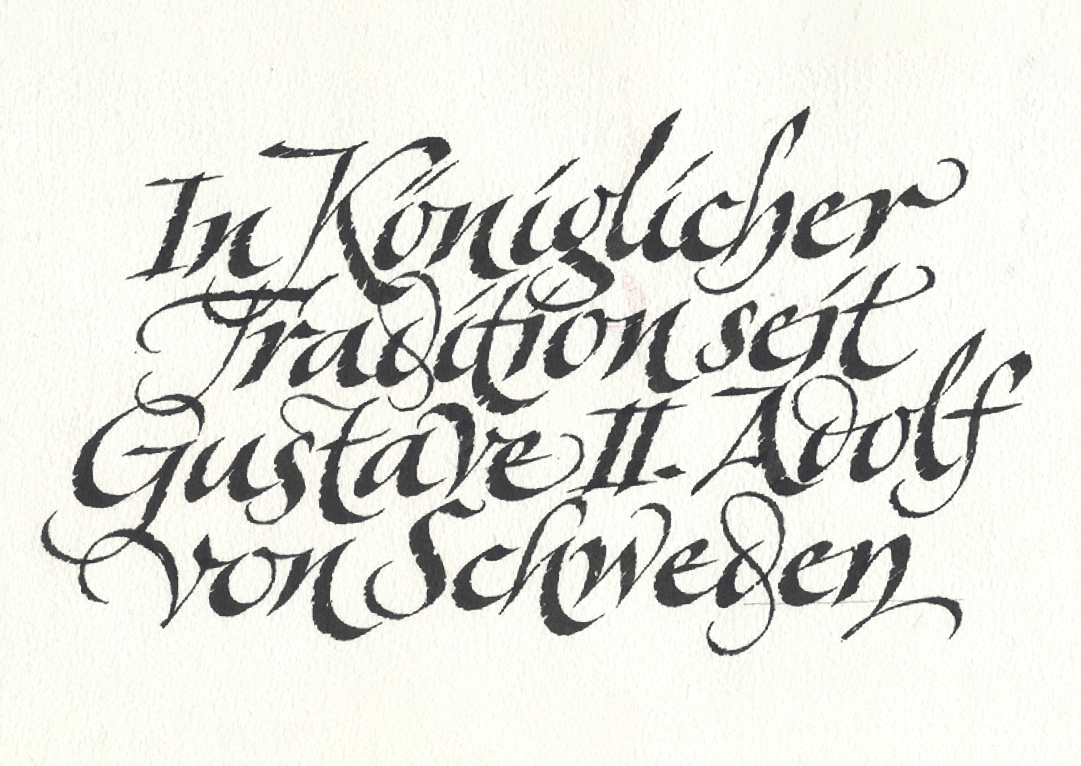 In Königlicher
Tradition seit
Gustave II. Adolf
von Schweden